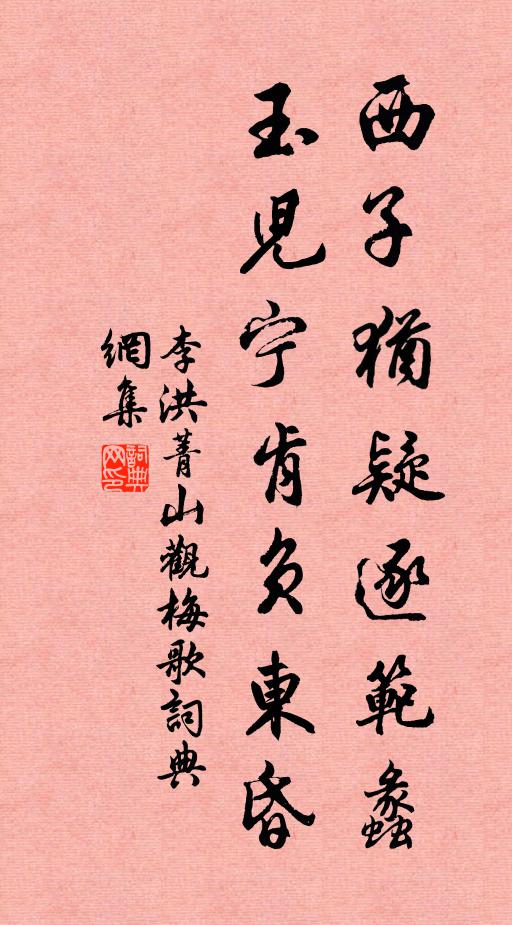 西子猶疑逐範蠡
玉児宁肯负東昏
李洪菁山觀梅歌詞典
網集
詞典
网印